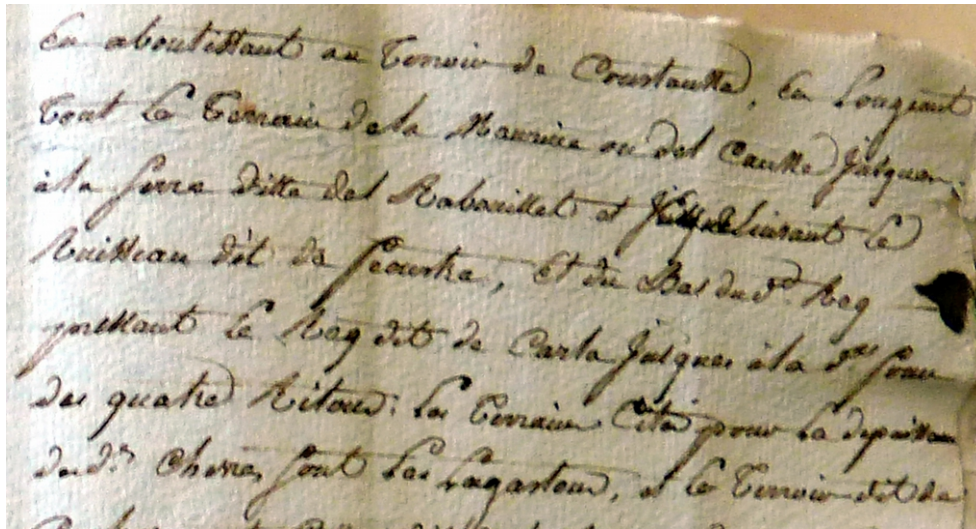 en aboutissant au Terroir de Coustausse, en Longeant
Tout Le Terrain de la Maurine ou del Causse Jusques
à la serre ditte del Rabouillet et suivant Le
Ruisseau dit de, Et du Bas du d.t Reg
prennant Le Reg dit de Carla Jusques à la d.te
des quatre Ritous; Les Terrains Cités pour La depaissan
des d.ts Chevres sont Les Lagastous, et Le Terroir dit de